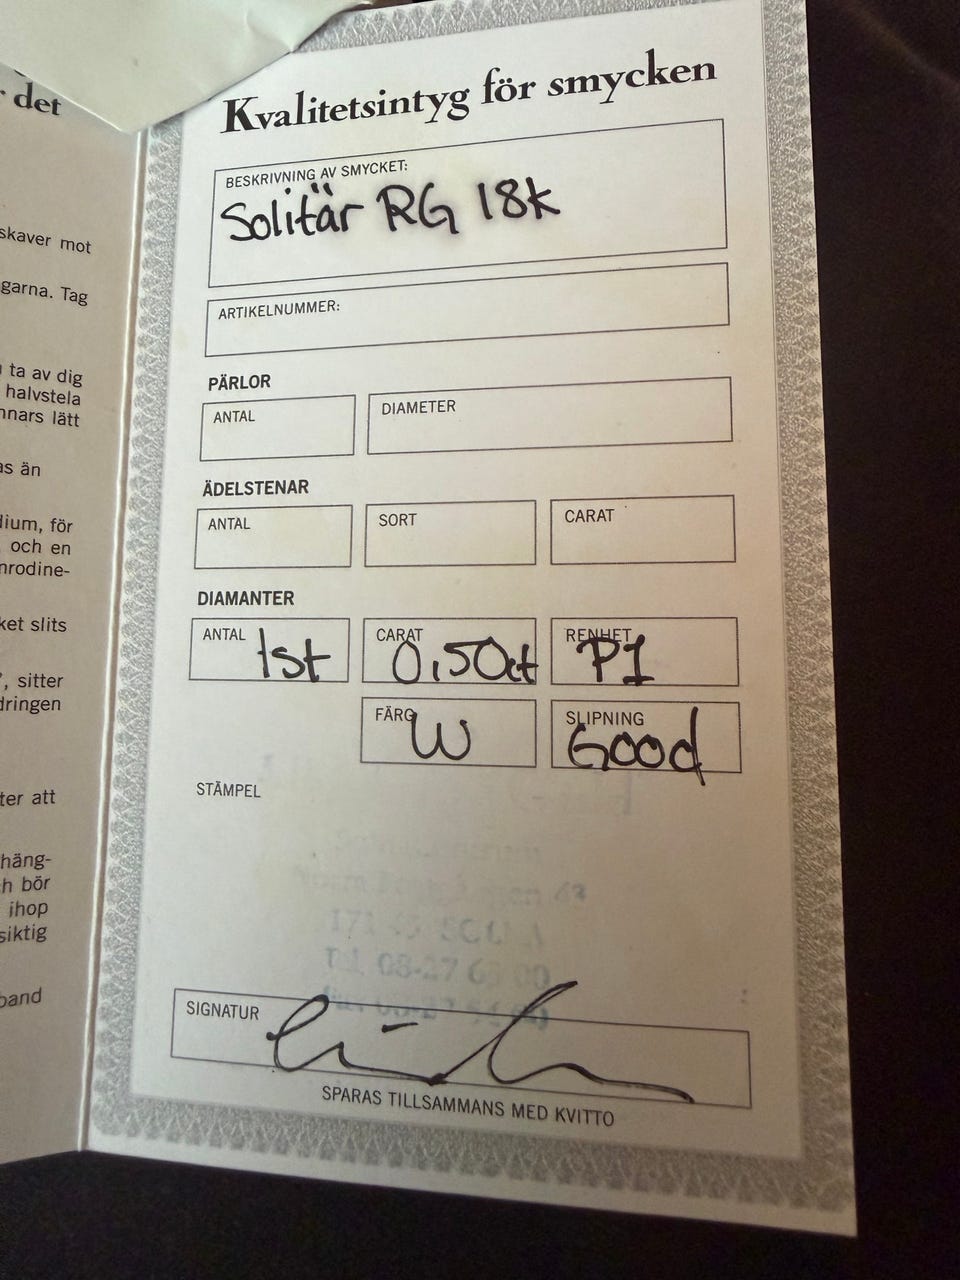 det
skaver mot
garna. Tag
ta av dig
halvstela
nnars lätt
as än
dium, för
och en
nrodine-
ket slits
, sitter
dringen
ter att
häng-
h bör
ihop
siktig
band
Kvalitetsintyg för smycken
BESKRIVNING AV SMYCKET:
Solitär RG 18k
ARTIKELNUMMER:
PÄRLOR
ANTAL DIAMETER
ÄDELSTENAR
ANTAL SORT CARAT
DIAMANTER
ANTAL 1st CARAT 0,50ct RENHET P1
FÄRG W SLIPNING Good
STÄMPEL
63
Tel. 08-27
SIGNATUR
SPARAS TILLSAMMANS MED KVITTO